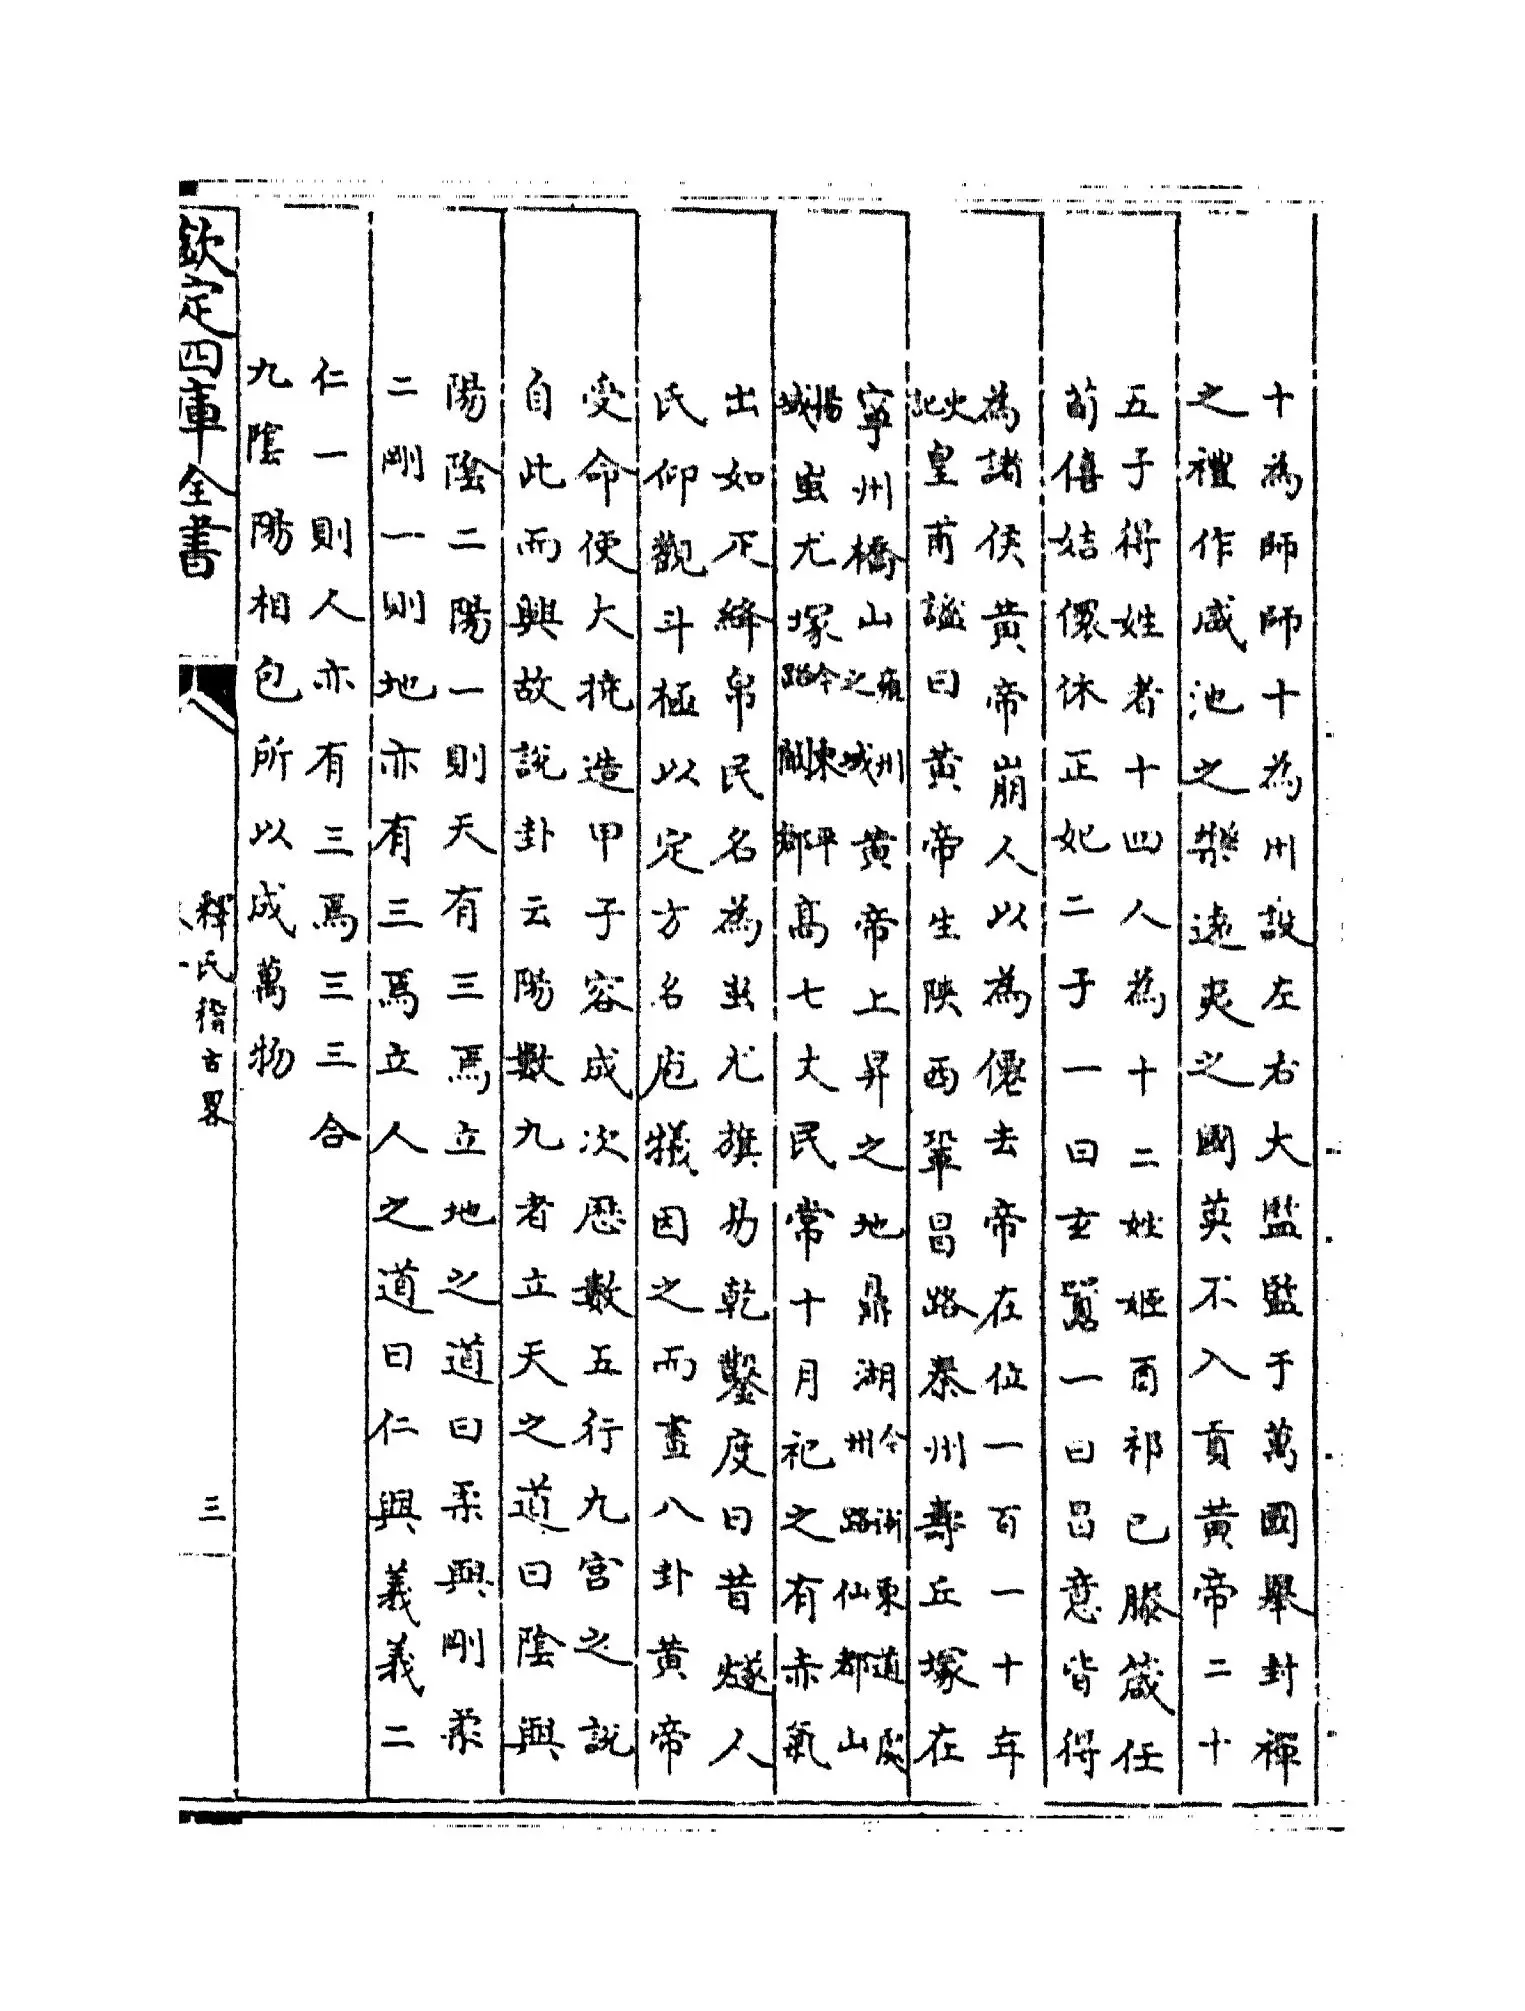 十為師師十為州設左右大監監于萬國舉封禪
之禮作咸池之樂遠夷之國英不入貢黃帝二十
五子得姓者十四人為十二姓姬酉祁己滕葴任
荀僖姞儇休正妃二子一曰玄囂一曰昌意皆得
為諸侯黃帝崩人以為僊去帝在位一百一十年
皇甫謐曰黃帝生陝西鞏昌路秦州壽丘塚在
寧州橋山雍州之城黃帝上昇之地鼎湖今衢州東道路仙都山
蚩尤塚今東平路郡高七丈民常十月祀之有赤氣
出如疋絳帛民名為蚩尤旗易乾鑿度曰昔燧人
氏仰觀斗極以定方名庖犧因之而畫八卦黃帝
受命使大撓造甲子容成次歷數五行九宮之說
自此而興故說卦云陽數九者立天之道曰陰與
陽陰二陽一則天有三焉立地之道曰柔與剛柔
二剛一則地亦有三焉立人之道曰仁與義義二
仁一則人亦有三焉三三合
九陰陽相包所以成萬物
欽定四庫全書
釋氏稽古畧
三